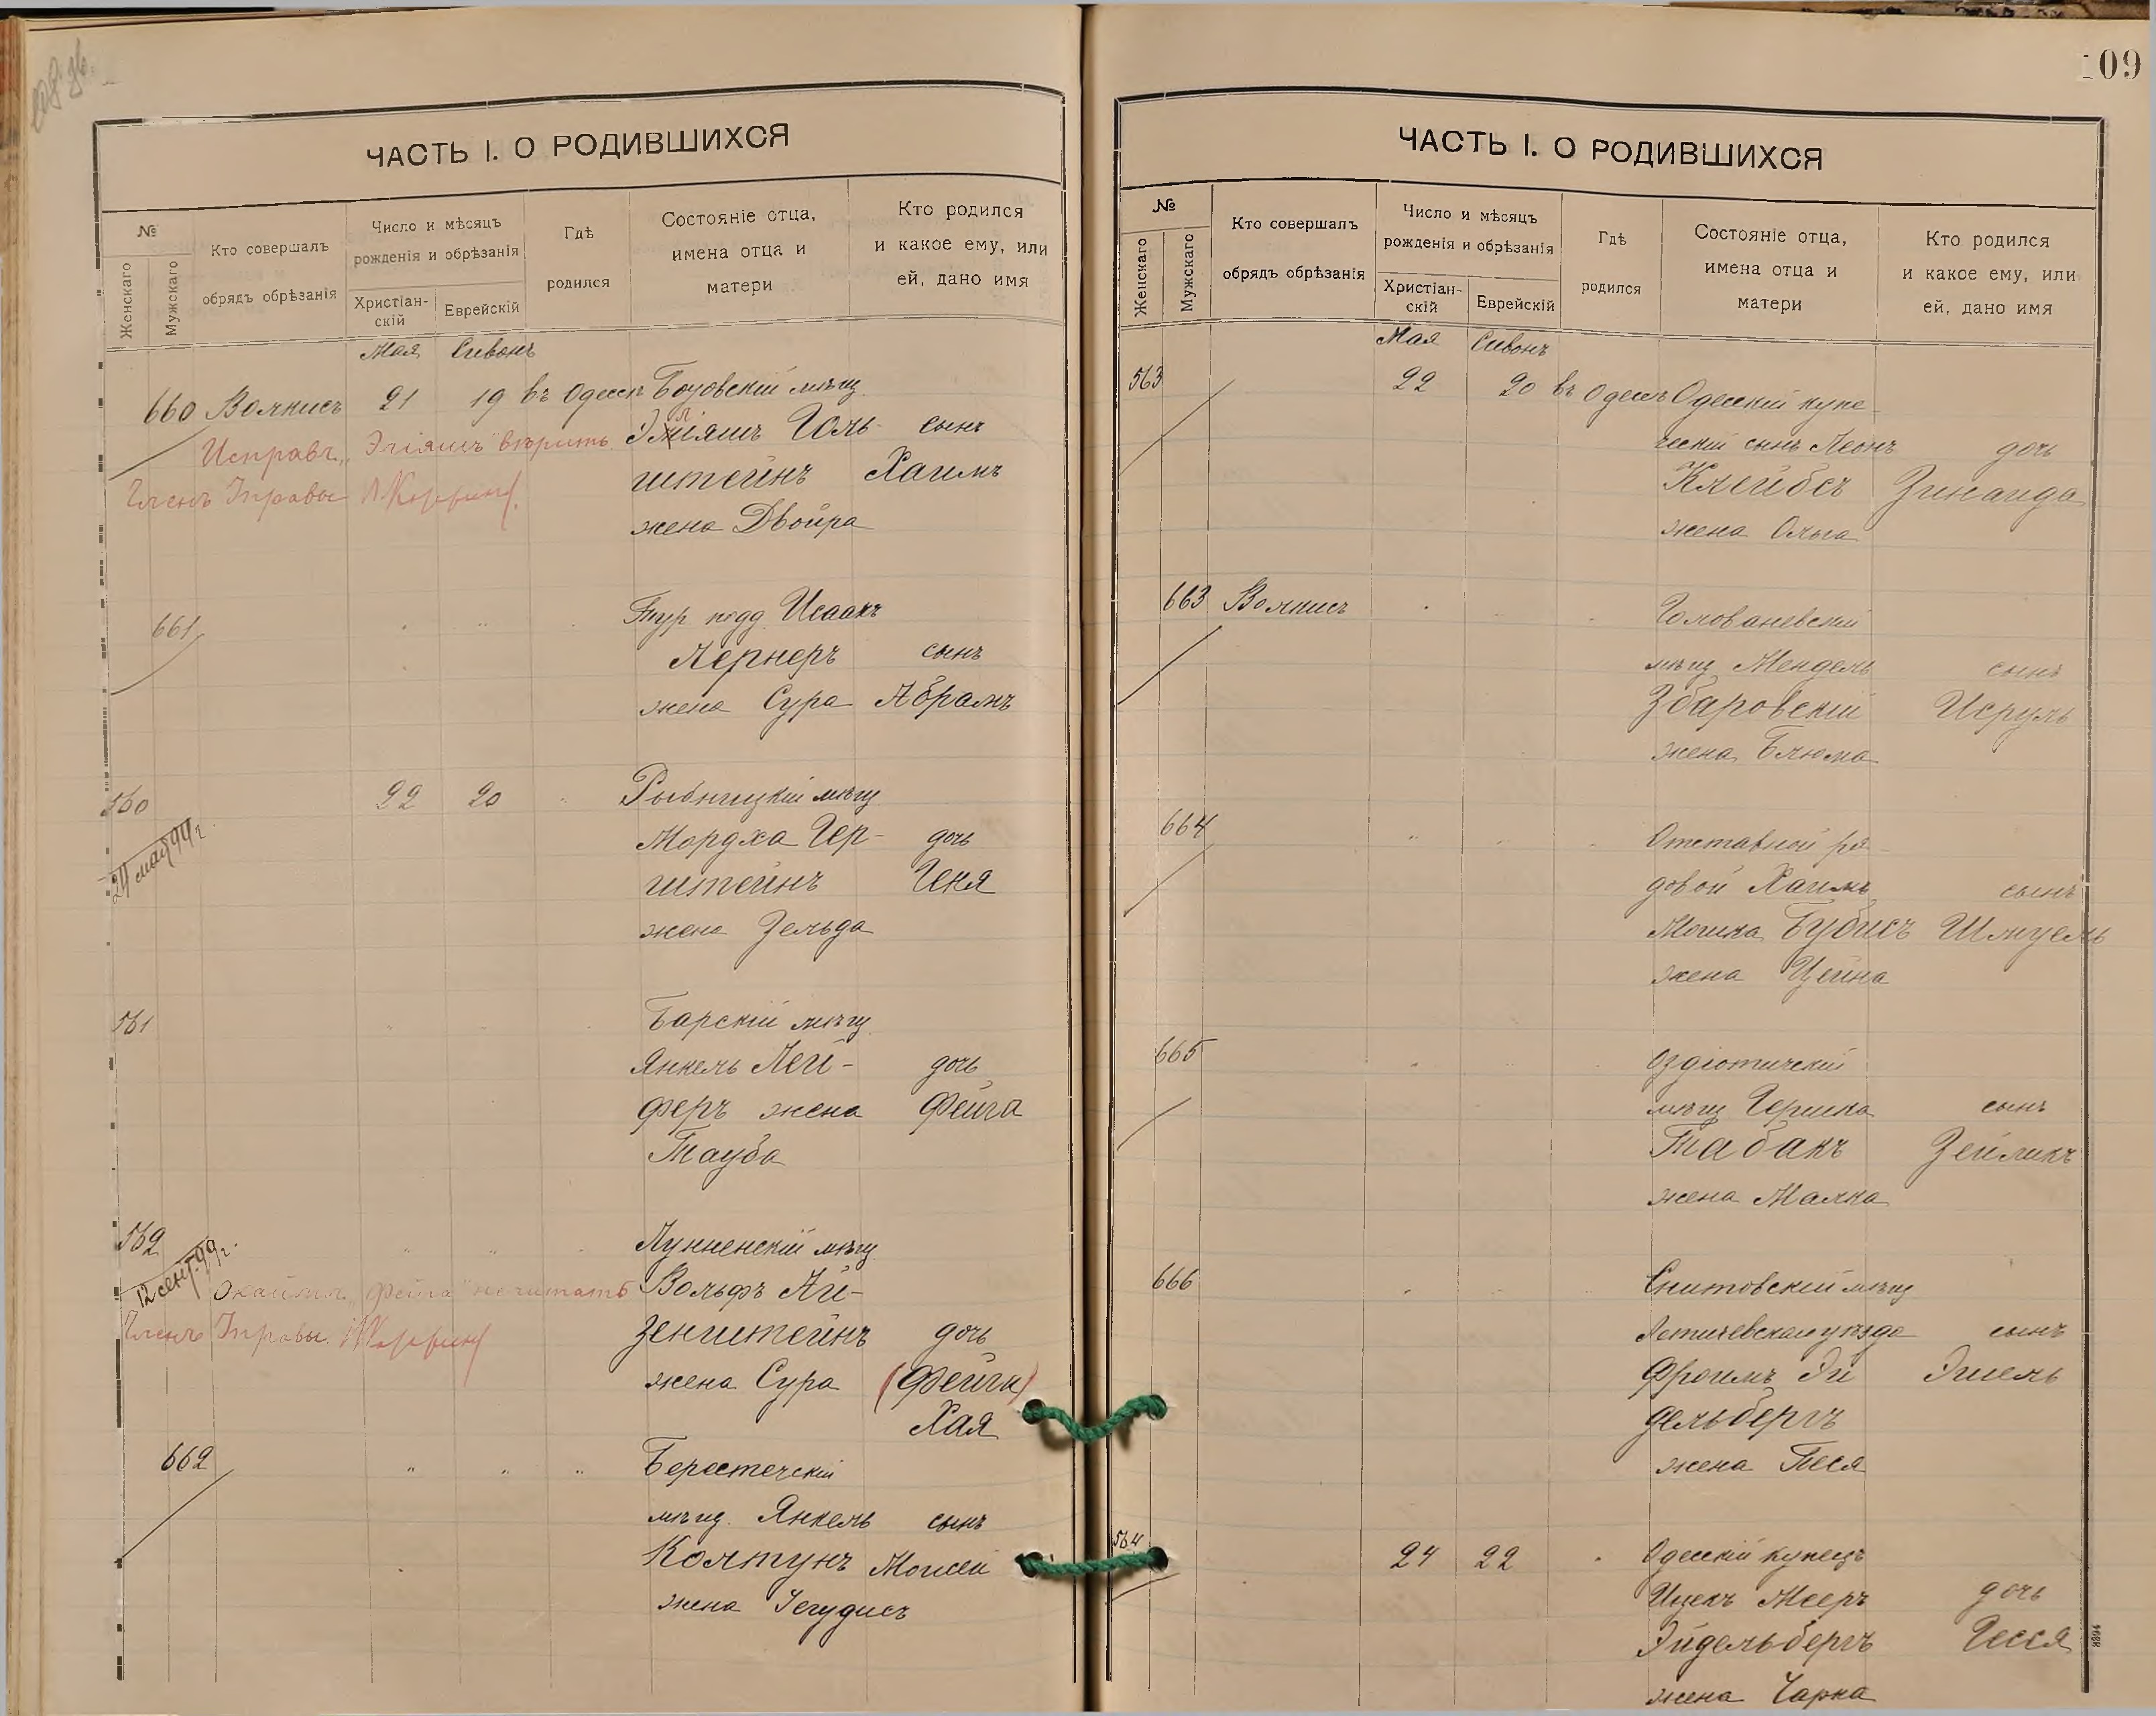 109
ЧАСТЬ I. О РОДИВШИХСЯ
№
Женскаго
Мужскаго
Кто совершалъ
обрядъ обрѣзанія
Число и мѣсяцъ
рожденія и обрѣзанія
Христіан-
скій
Еврейскій
Гдѣ
родился
Состояніе отца,
имена отца и
матери
Кто родился
и какое ему, или
ей, дано имя
Мая Сивонъ
660 Волчисъ 21 19 въ Одессѣ мѣщ.
Голь- сынъ
штейнъ Хаимъ
жена Двойра
Исправ. вѣрить
Членъ Управы
661 Тур. подд. Исаакъ
Лернеръ сынъ
жена Сура Абрамъ
560 22 20 Рыбницкій мѣщ
Мордха Гер- дочь
штейнъ Геня
жена Зельда
24 мая 99 г.
561 Барскій мѣщ.
Янкель Лей- дочь
феръ жена Фейга
Тауба
562 Лунненскій мѣщ.
Вольфъ Ай-
зенштейнъ дочь
жена Сура (Фейга)
Хая
12 сент. 99 г.
„Фейга“ не читать
Членъ Управы
662 Берестечскій
мѣщ. Янкель сынъ
Колтунъ Моисей
жена Іегудисъ
ЧАСТЬ I. О РОДИВШИХСЯ
№
Женскаго
Мужскаго
Кто совершалъ
обрядъ обрѣзанія
Число и мѣсяцъ
рожденія и обрѣзанія
Христіан-
скій
Еврейскій
Гдѣ
родился
Состояніе отца,
имена отца и
матери
Кто родился
и какое ему, или
ей, дано имя
Мая Сивонъ
563 22 20 въ Одессѣ Одесскій купе-
ческій сынъ Леонъ дочь
Клейбсъ Зинаида
жена Ольга
663 Волчисъ Голованевскій
мѣщ. Мендель сынъ
Збаровскій Исруль
жена Блюма
664 Отставной ря-
довой Хаимъ сынъ
Мошка Бубисъ Шмуель
жена Цейна
665
мѣщ. Гершка сынъ
Табакъ Зейликъ
жена Малка
666 Снитовскій мѣщ
Летичевскаго уѣзда сынъ
Фроимъ Эй
дельбергъ
жена Песя
564 24 22 Одесскій купецъ
Ицекъ Мееръ дочь
Эйдельбергъ Гесся
жена Чарна